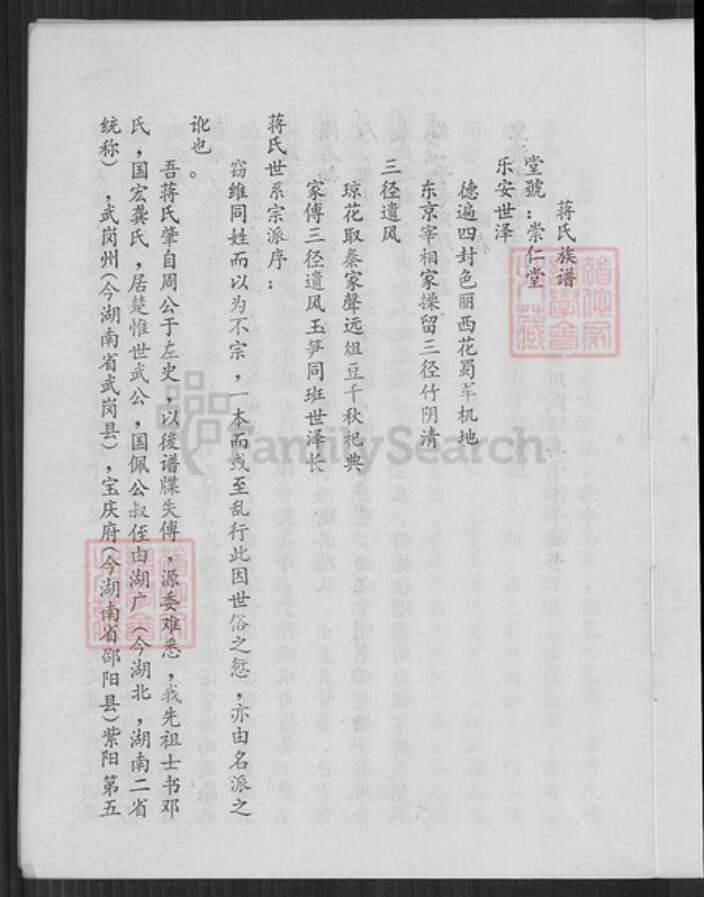 蒋氏族谱
堂號：崇仁堂
乐安世泽
德遍四封色丽西花蜀羊机地
东京宰相家操留三径竹阴清
三径遺风
琼花取秦家聲远俎豆千秋祀典
家傳三径遺风玉笋同班世泽长
蒋氏世系宗派序：
窃维同姓而以为不宗，一本而或至乱行此因世俗之愆，亦由名派之
讹也。
吾蒋氏肇自周公于左史，以後谱牒失傅，源委难悉，我先祖士书邓
氏，国宏龚氏，居楚惟世武公，国佩公叔侄由湖广（今湖北，湖南二省
统称），武岗州（今湖南省武岗县），宝庆府（今湖南省邵阳县）紫阳第五
FamilySearch